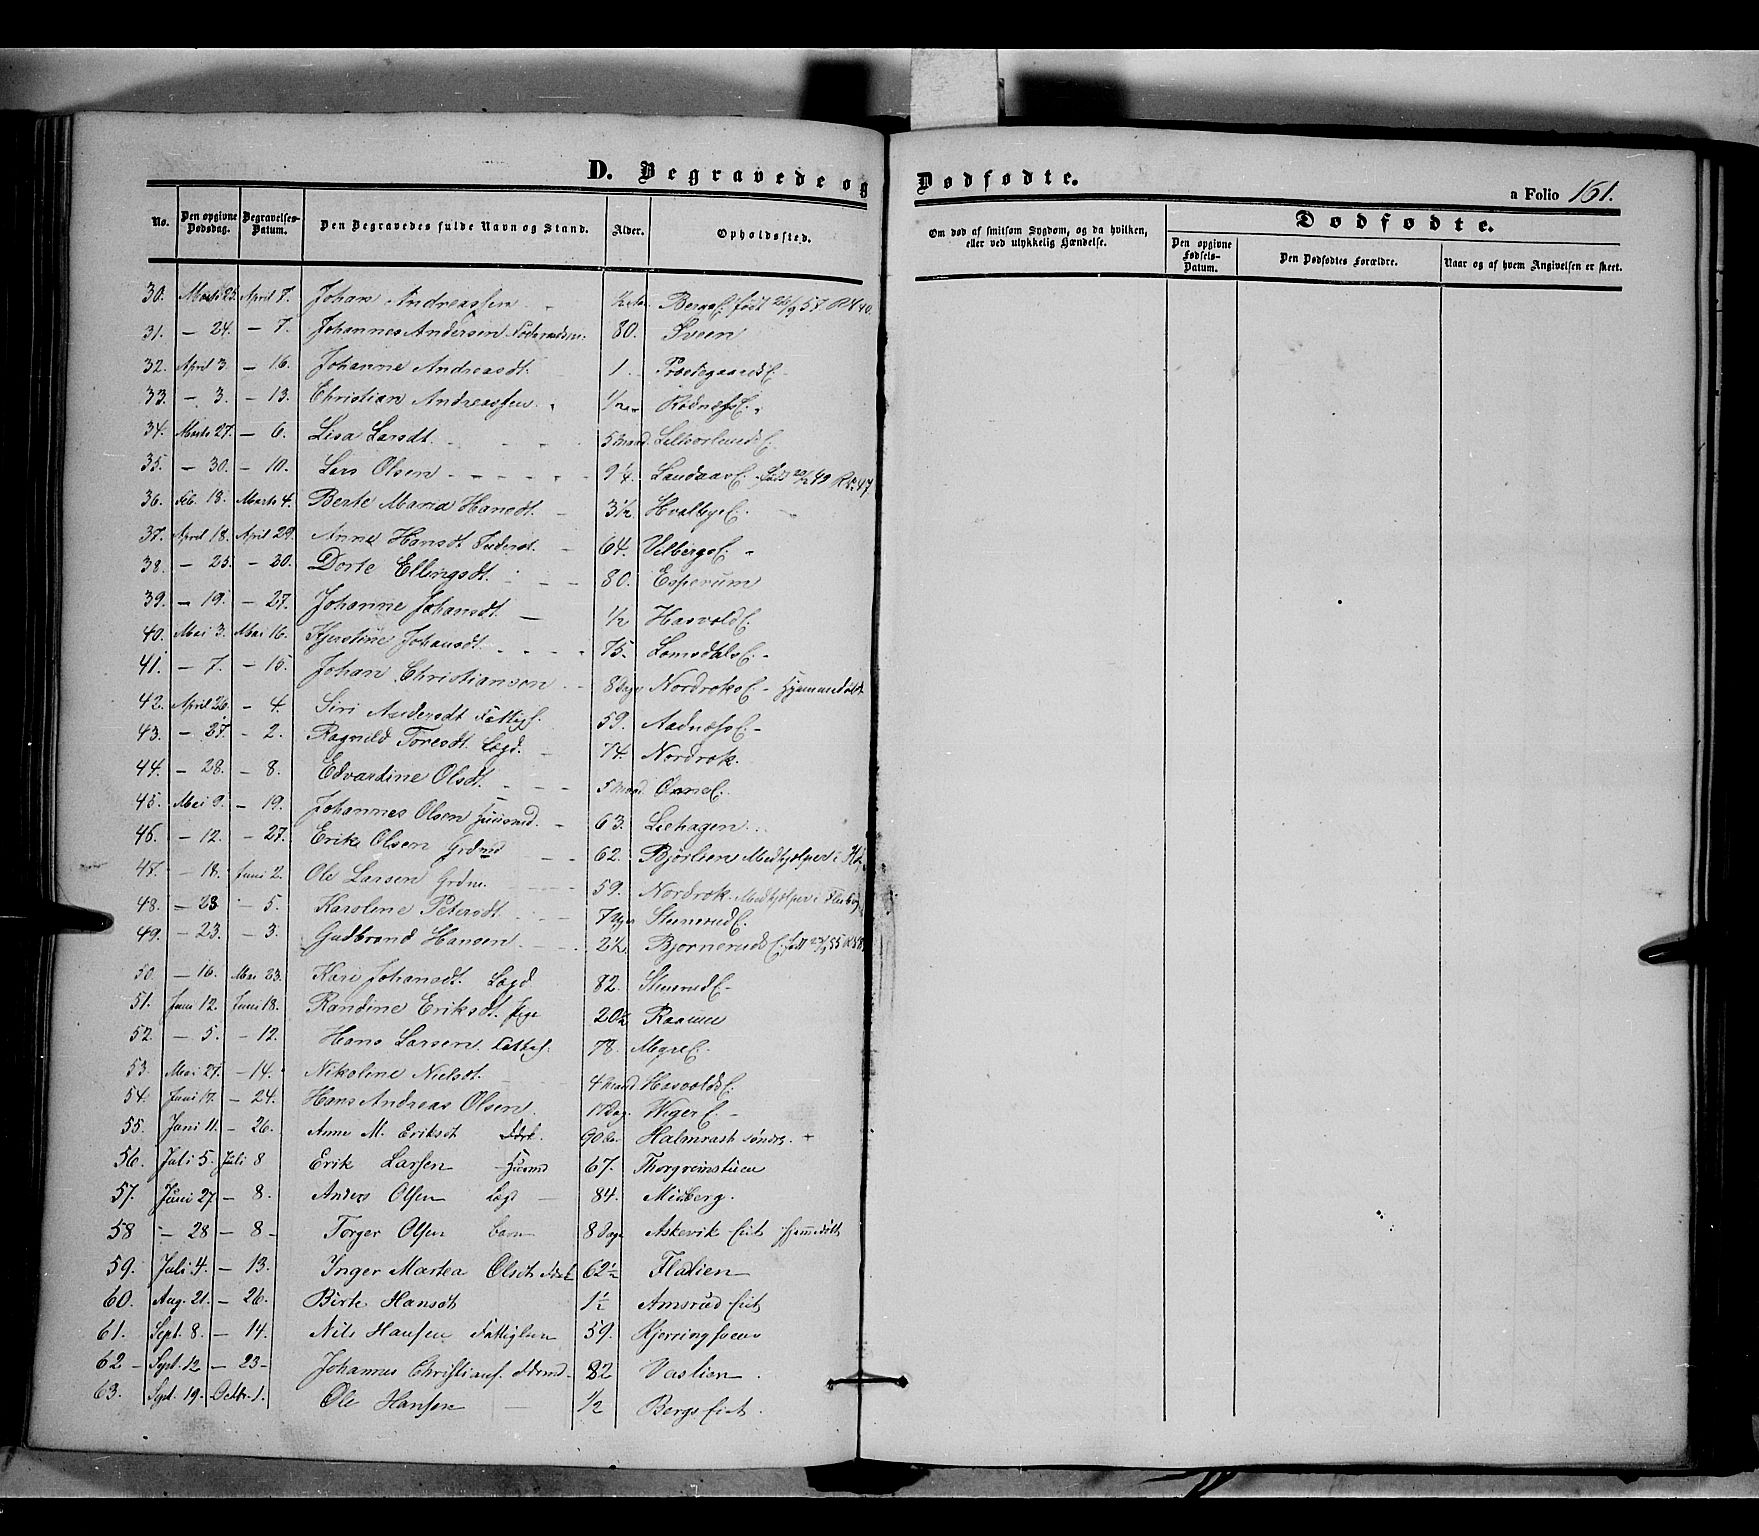 D. Begravede og Dødfødte.
a Folio 161.
No. Den opgivne Dødsdag. Begravelses-Datum. Den Begravedes fulde Navn og Stand. Alder. Opholdssted. Om død af smitsom Sygdom, og da hvilken, eller ved ulykkelig Hændelse. Dødfødte.
Den opgivne Fødsels-Datum. Den Dødfødtes Forældre. Naar og af hvem Angivelsen er skeet.
30. Marts 25. April 7. Johan Andreassen ½ Aar Bergs E. født 26/9 57
31. - 24. - 7. Johannes Andersen 80. Sveen
32. April 3. - 16. Johanne Andreasdt 1.
33. - 3. - 13. Christian Andreassen ½ aar
34. Marts 27. - 6. Lisa Larsdt. 5 Maan.
35. - 30. - 10. Lars Olsen 9¼. Landaas E.
36. Feb. 18. Marts 4. Berte Maria Hansdt. 3½ Hvalbye E.
37. April 18. April 29. Anne Hansdt 64. Velbergs E.
38. - 25. - 30. Dorte Ellingsdt. 80. Esperum
39. - 19. - 27. Johanne Johansdt ½ Hasvold E.
40. Mai 3. Mai 16. Kjerstine Johansdt. 75. Lomsdals E.
41. - 7. - 15. Johan Christiansen 8 Dage Nordroks E. - Hjemmedøbt
42. April 26. - 4. Siri Andersdt Fattigl. 59. Aadnæss E.
43. - 27. - 2. Ragnild Toresdt. Lægd. 74. Nordrok.
44. - 28. - 8. Edvardine Olsdt. 5 Maan.
45. Mai 9. - 19. Johannes Olsen Huusmd. 63. Liehagen
46. - 12. - 27. Erik Olsen Grdmd 62. Bjørlien Medhjelper i
47. - 18. Juni 2. Ole Larsen Grdm. 59. Nordrok Medhjelper i
48. - 23. - 5. Karoline Petersdt. 7 Uger Steinsrud E.
49. - 23. - 3. Gudbrand Hansen. 2½ Bjørneruds E.
50. - 16. Mai 23. Kari Johansdt. Lægd 82. Steinsrud E.
51. Juni 12. Juni 18. Randine Eriksdt. Pige 20½ Raamen
52. - 5. - 12. Hans Larsen. 78. Møgre E.
53. Mai 27. - 14. Nikoline Nielsdt. 4 Maan. Hasvolds E.
54. Juni 17. - 24. Hans Andreas Olsen. 17 Dag. Wiger E.
55. Juni 11. - 26. Anne M. Eriksdt 90 Halmrast søndre.
56. Juli 5. Juli 8 Erik Larsen Husmd 67. Thorgrimstuen
57. Juni 27. - 8. Anders Olsen Lægd 84. Midberg.
58 - 28 - 8 - Torger Olsen barn 8 Dage Askevik Eiet hjemmedøbt
59. Juli 4. - 13. Inger Martea Olsdt 62½ Flatlien
60. Aug. 21. - 26. Birte Hansdt 1½ Amsrud Eiet
61. Sept. 8. - 14. Nils Hansen Fattiglem 59. Kjerringsveen
62 - Sept. 12 - 23 - Johannes Christians. 82 Vaslien.
63. Sept. 19. Octbr. 1. Ole Hansen ½ Bergs Eiet.